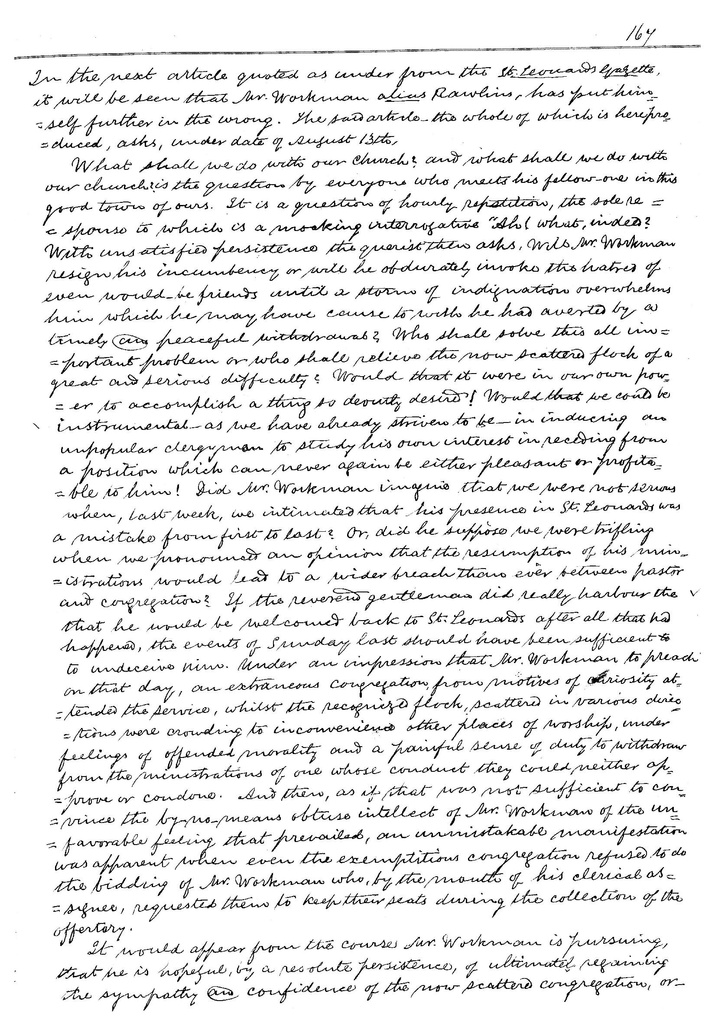 167
In the next article quoted as under from the St. Leonards Gazette,
it will be seen that Mr. Workman alias Rawlins, has put him=
=self further in the wrong. The said article - the whole of which is herepro
=duced, asks, under date of August 13th,
What shall we do with our church? and what shall we do with
our church? is the question by everyone who meets his fellow-one in this
good town of ours. It is a question of hourly repetition, the sole re=
=sponse to which is a mocking interrogative "Ah! what, indeed?
With unsatisfied persistence the querist then asks, Will Mr. Workman
resign his incumbency or will he obdurately invoke the hatred of
even would-be friends until a storm of indignation overwhelms
him which he may have cause to wish he had averted by a
timely and peaceful withdrawal? Who shall solve this all im=
=portant problem or who shall relieve the now scattered flock of a
great and serious difficulty? Would that it were in our own pow-
=er to accomplish a thing so devoutly desired! Would that we could be
instrumental - as we have already striven to be - in inducing an
unpopular clergyman to study his own interest in receding from
a position which can never again be either pleasant or profita-
=ble to him! Did Mr. Workman imagine that we were not serious
when, last week, we intimated that his presence in St. Leonards was
a mistake from first to last? Or, did he suppose we were trifling
when we pronounced an opinion that the resumption of his min-
=istrations would lead to a wider breach than ever between pastor
and congregation? If the reverend gentleman did really harbour the
that he would be welcomed back to St. Leonards after all that had
happened, the events of Sunday last should have been sufficient to
to undeceive him. Under an impression that Mr. Workman to preach
on that day, an extraneous congregation, from motives of curiosity at=
=tended the service, whilst the recognized flock, scattered in various direc
=tions were crowding to inconvenience other places of worship, under
feelings of offended morality and a painful sense of duty to withdraw
from the ministrations of one whose conduct they could neither ap=
=prove or condone. And then, as if that was not sufficient to con=
=vince the by-no-means obtuse intellect of Mr. Workman of the un=
=favorable feeling that prevailed, an unmistakable manifestation
was apparent when even the exemptitious congregation refused to do
the bidding of Mr. Workman who, by the mouth of his clerical as=
=signee, requested them to keep their seats during the collection of the
offertory.
It would appear from the course Mr. Workman is pursuing,
that he is hopeful, by a resolute persistence, of ultimately regaining
the sympathy and confidence of the now scattered congregation, or-